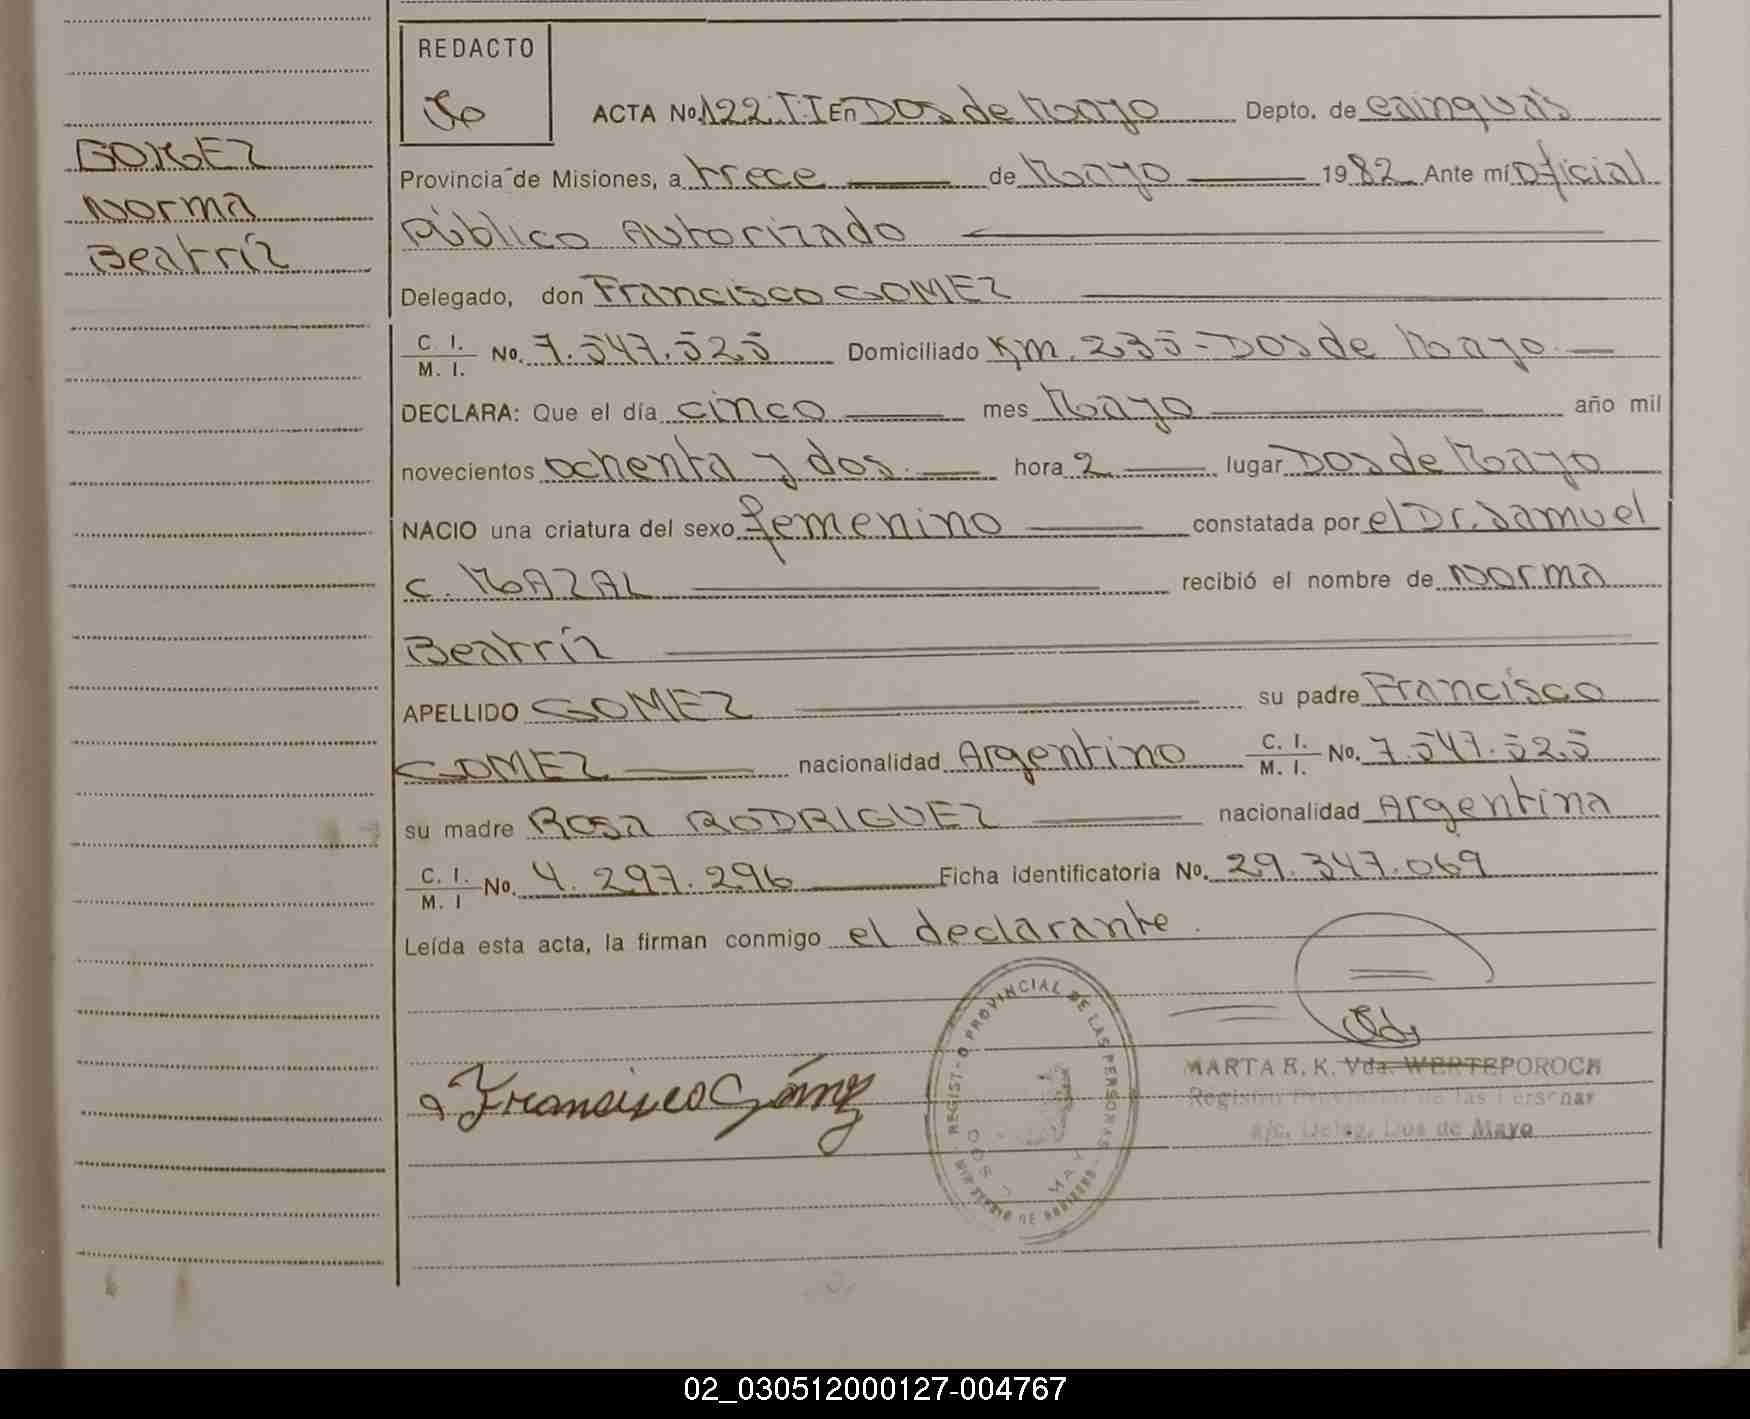 REDACTO
GOMEZ
Norma
Beatríz
ACTA No. 122.II En Dos de Mayo Depto. de Cainguás
Provincia de Misiones, a trece de Mayo 1982 Ante mí Oficial
Público Autorizado
Delegado, don Francisco GOMEZ
C. I.
M. I. No. 7.547.525 Domiciliado Km. 235 - Dos de Mayo
DECLARA: Que el día cinco mes Mayo año mil
novecientos ochenta y dos. hora 2 lugar Dos de Mayo
NACIO una criatura del sexo femenino constatada por el Dr. Samuel
C. MAZAL recibió el nombre de Norma
Beatríz
APELLIDO GOMEZ su padre Francisco
GOMEZ nacionalidad Argentino C. I.
M. I. No. 7.547.525
su madre Rosa RODRIGUEZ nacionalidad Argentina
C. I.
M. I No. 4.297.296 Ficha identificatoria No. 29.347.069
Leída esta acta, la firman conmigo el declarante.
Francisco Gómez
REGISTRO PROVINCIAL DE LAS PERSONAS
DOS MAYO
MINISTERIO DE GOBIERNO
MARTA R. K. Vda. WERTEPOROCH
Registro Provincial de las Personas
a/c. Deleg. Dos de Mayo
02_030512000127-004767